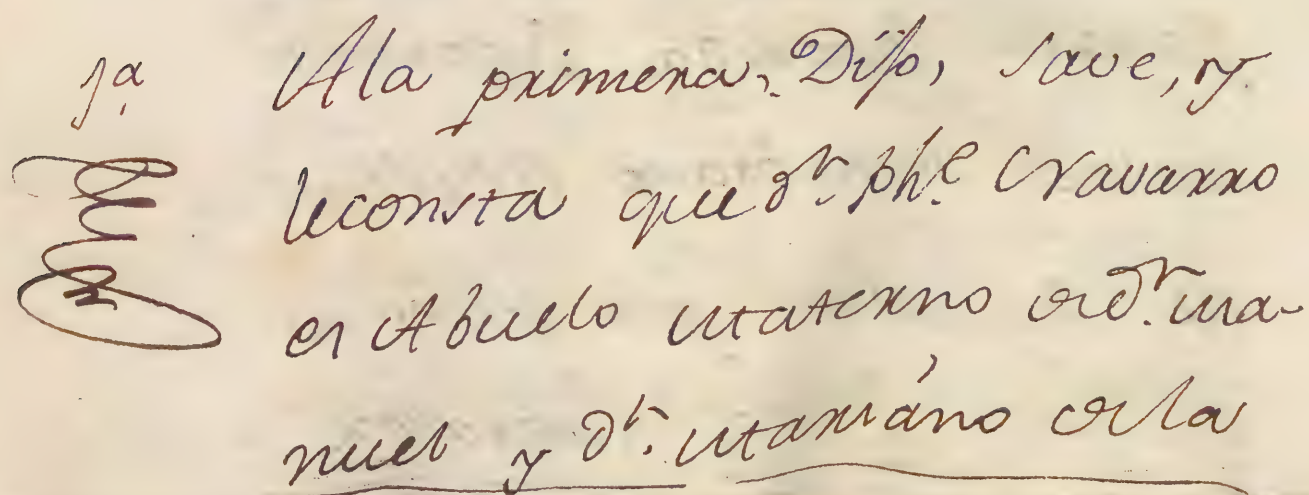 1ª A la primera, Dijo, save, y
le consta que Dn. Phe. Navarro
es Abuelo Materno de Dn. Ma-
nuel y Dn. Mariáno de la